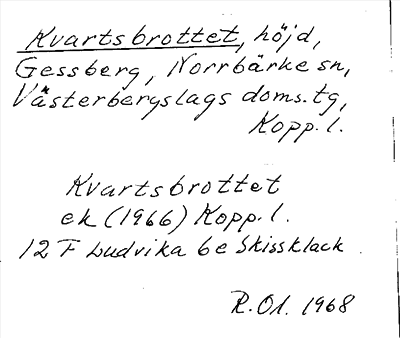 Kvartsbrottet, höjd,
Gessberg, Norrbärke sn,
Västerbergslags doms.tg,
Kopp. l.
Kvartsbrottet
ek (1966) Kopp. l.
12 F Ludvika 6e Skissklack
R.Ol. 1968